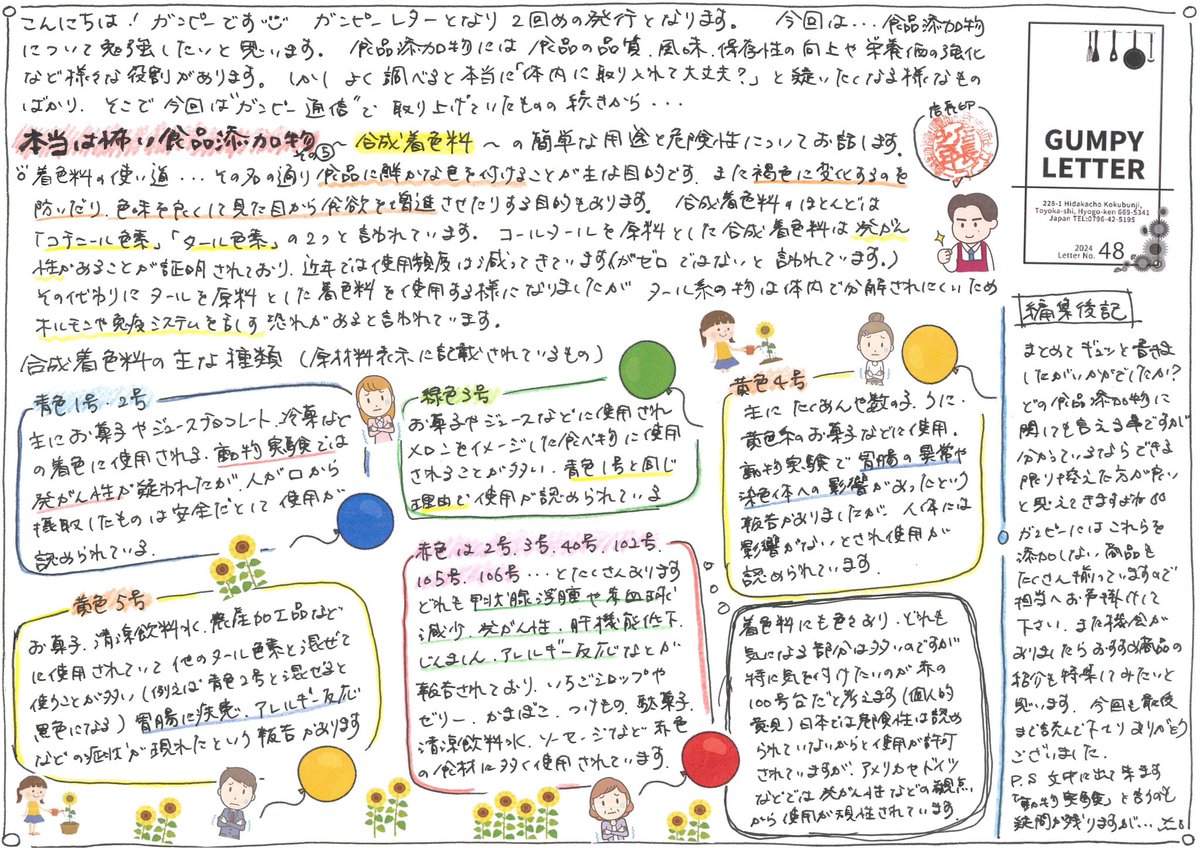 こんにちは！ガンピーです 　ガンピーレターとなり2回めの発行となります。　今回は…食品添加物
について勉強したいと思います。食品添加物には食品の品質、風味、保存性の向上や栄養価の強化
など様々な役割があります。しかしよく調べると本当に「体内に取り入れて大丈夫？」と疑いたくなる様なもの
ばかり、そこで今回は"ガンピー通信"で取り上げていたものの続きから…
本当は怖い食品添加物 その⑤ ～ 合成着色料 ～の簡単な用途と危険性についてお話します。
。着色料の使い道…その名の通り食品に鮮かな色を付けることが主な目的です。また褐色に変化するのを
防いだり、色味を良くして見た目から食欲を増進させたりする目的もあります。合成着色料のほとんどは
「コチニール色素」「タール色素」の2つと言われています。コールタールを原料とした合成着色料は発がん
性があることが証明されており、近年では使用頻度は減ってきています(がゼロではないと言われています。)
その代わりにタールを原料とした着色料を使用する様になりましたがタール系の物は体内で分解されにくいため
ホルモンや免疫システムを乱す恐れがあると言われています。
合成着色料の主な種類（原材料表示に記載されているもの）
店長印
GUMPY
LETTER
228-1 Hidakacho Kokubunji,
Toyoka-shi, Hyogo-ken 669-5341
Japan TEL:0796-42-5195
2024
Letter No. 48
青色1号・2号
主にお菓子やジュースチョコレート、冷菓など
の着色に使用される、動物実験では
発がん性が疑われたが、人が口から
摂取したものは安全だとして使用が
認められている。
緑色3号
お菓子やジュースなどに使用され
メロンをイメージした食べ物に使用
されることが多い、青色1号と同じ
理由で使用が認められている
黄色4号
主にたくあんや数の子、うに、
黄色系のお菓子などに使用。
動物実験で胃腸の異常や
染色体への影響があったという
報告がありましたが、人体には
影響がないとされ使用が
認められています。
黄色5号
お菓子、清涼飲料水、農産加工品など
に使用されていて他のタール色素と混ぜて
使うことが多い（例えば青色2号と混ぜると
黒色になる）胃腸に疾患、アレルギー反応
などの症状が現れたという報告があります
赤色は2号、3号、40号、102号、
105号、106号…とたくさんあります
どれも甲状腺浮腫や赤血球
減少、発がん性、肝機能低下、
じんましん、アレルギー反応などが
報告されており、いちごシロップや
ゼリー、かまぼこ、つけもの、駄菓子、
清涼飲料水、ソーセージなど赤色
の食材に多く使用されています。
着色料にも色々あり、どれも
気になる部分は多いのですが
特に気を付けたいのが赤の
100号台だと考えます（個人的
意見）日本では危険性は認め
られていないからと使用が許可
されていますが、アメリカやドイツ
などでは発がん性などの観点
から使用が規制されています。
編集後記
まとめてギュッと書きま
したがいかがでしたか？
どの食品添加物に
関しても言える事ですが
分かっているならできる
限り控えた方が良い
と思えてきますよね
ガンピーにはこれらを
添加しない商品も
たくさん揃っていますので
担当へお声掛けして
下さい。また機会が
ありましたらおすすめ商品の
紹介も特集してみたいと
思います。今回も最後
まで読んで下さりありがとう
ございました。
P.S 文中に出て来ます
「動物実験」と言うのも
疑問が残りますが…